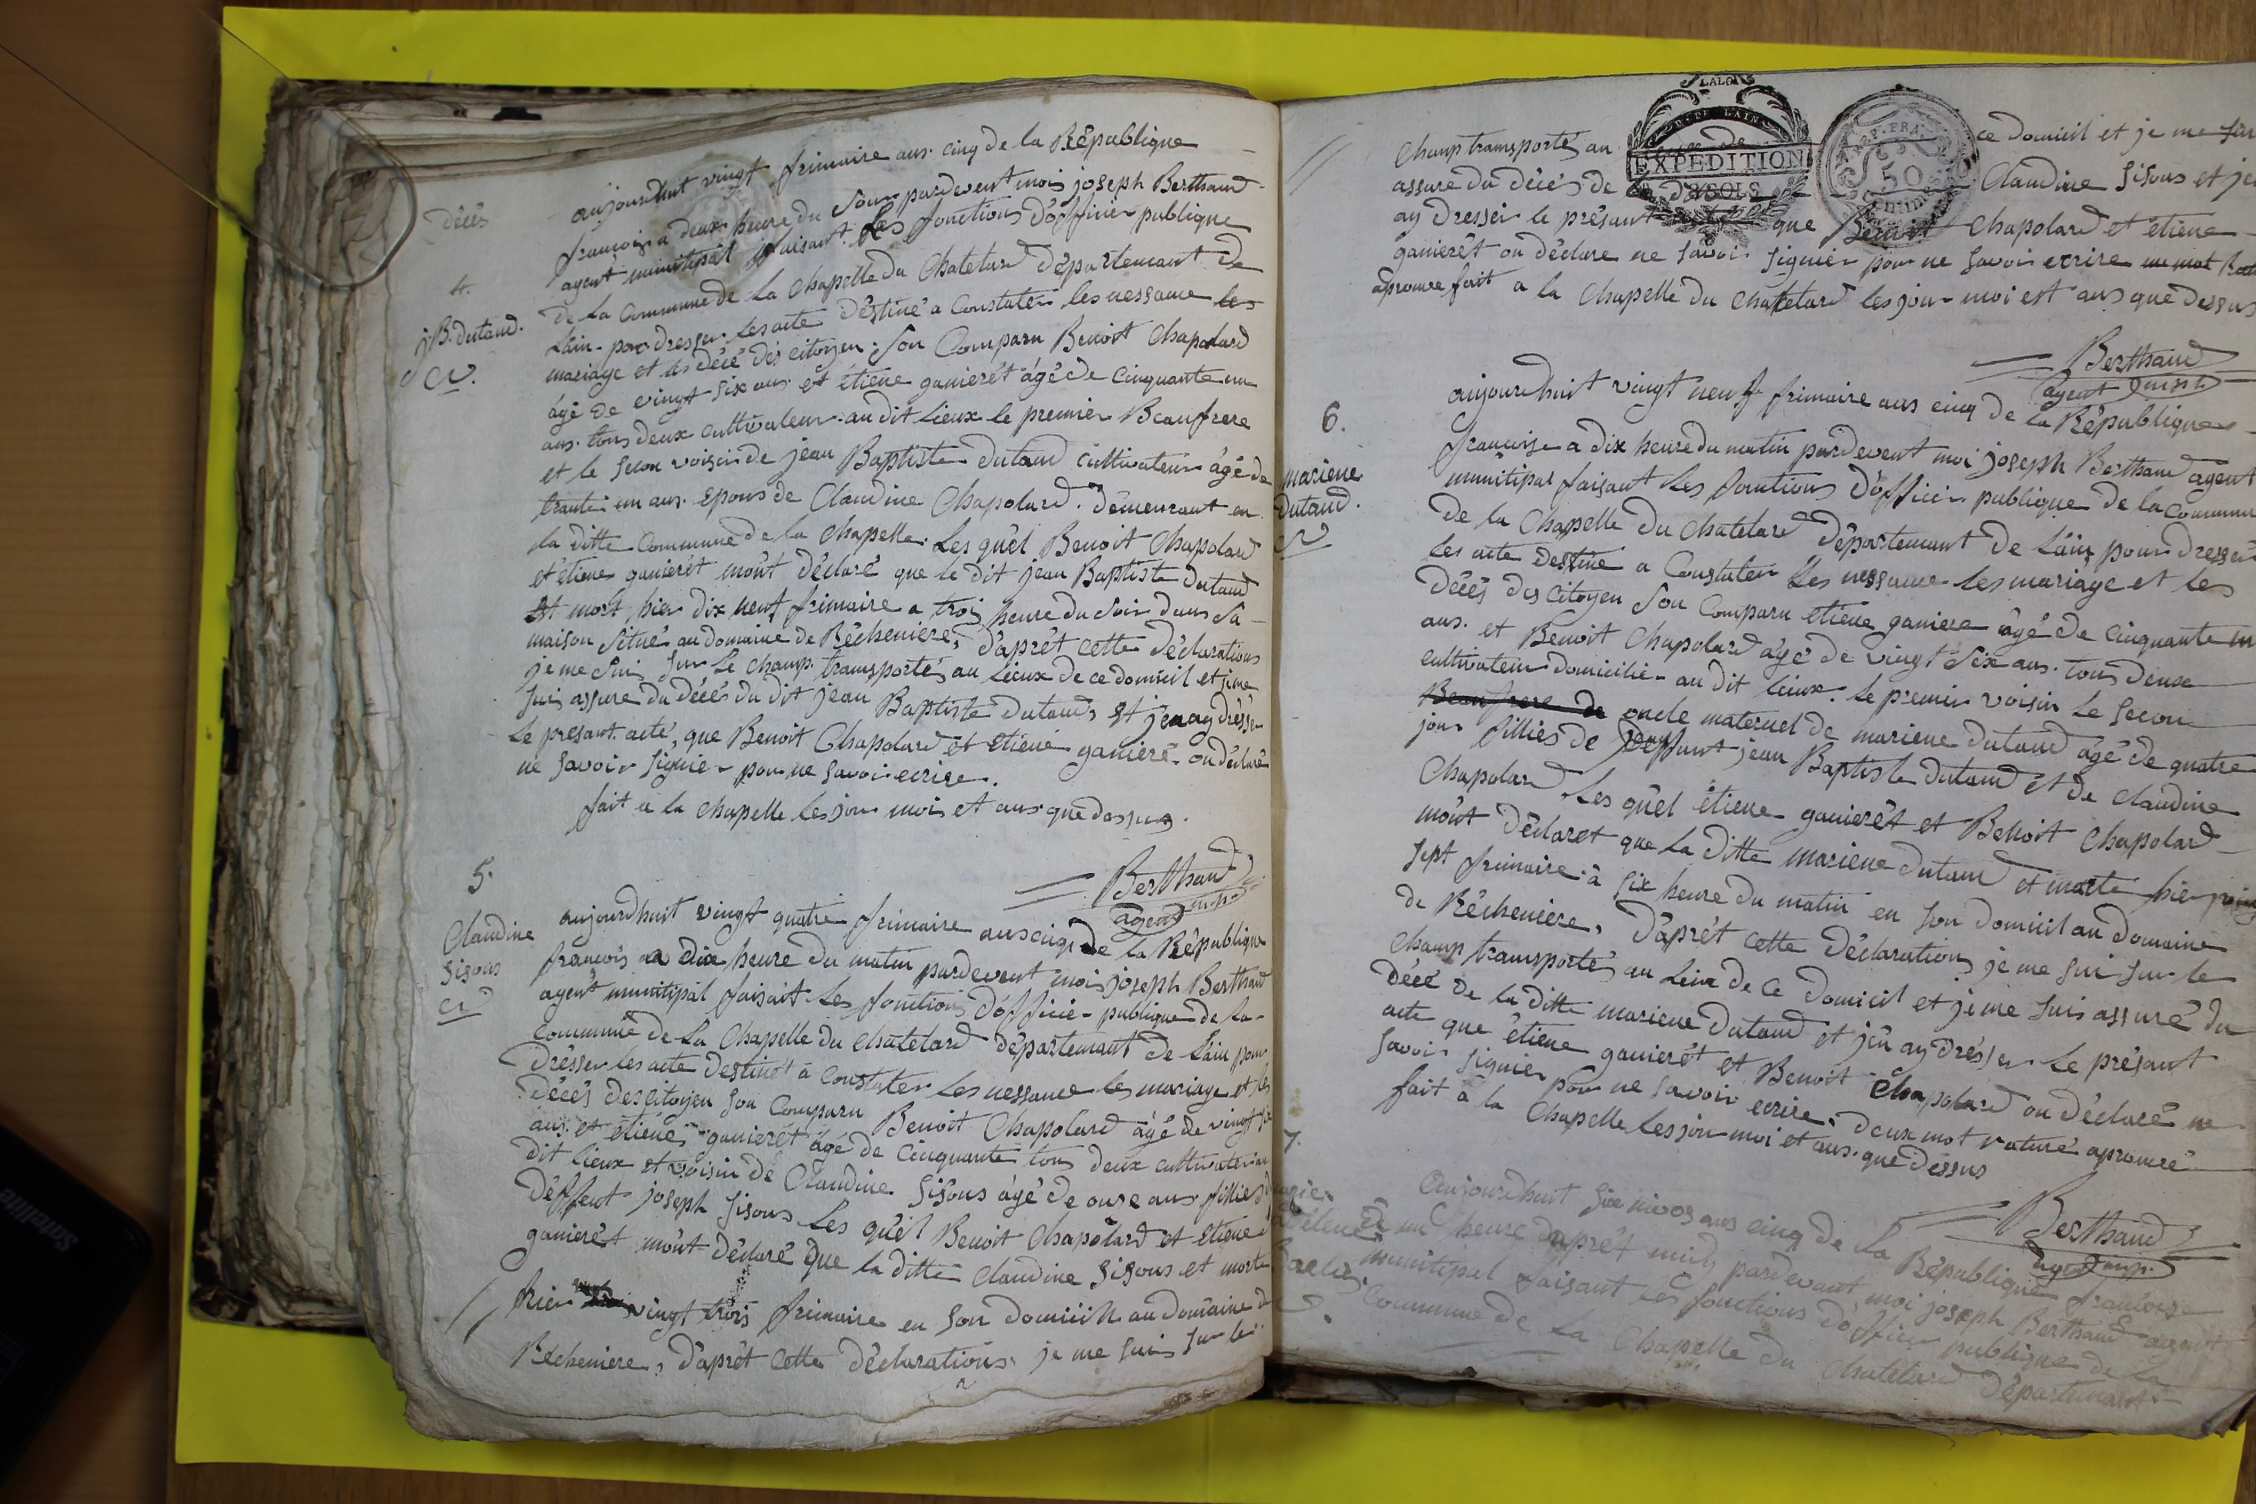 décés
4.
jB. dutaud.
cv.
aujourdhuit vingt frimaire ans cinq de la République
françoise a deux heure du soir pardevent moi joseph Berthaud
agent munitipal faisant les fonctions d'officier publique
de la Commune de La Chapelle du Chatelard département de
Lain pour dresser les acte déstiné a Constater les nessance les
mariage et les décé des citoyen son Comparu Benoit Chapolard
âgé de vingt six ans et étiene ganierét âgé de cinquante un
ans tous deux cultivateur au dit Lieux le premier Beaufrere
et le secon voisin de jean Baptiste dutaud cultivateur âgé de
trante un ans Epous de Claudine Chapolard démeurant en
la ditte Commune de la Chapelle. Les quél Benoit Chapolard
et étiene ganierét mônt déclaré que le dit jean Baptiste dutaud
Et mort hier dix neuf frimaire a trois heure du soir dans sa
maison situé au domaine de Récheniere, d'aprét cette déclarations
je me suis sur Le champ transporté au Lieux de ce domicil et je me
suis assure du décés du dit jean Baptiste dutaud, et jén ay drésser
Le presant acte, que Benoit Chapolard et Etiene ganieré on déclaré
ne savoir signier pour ne savoir ecrire.
fait a la chapelle les jour mois et ans que dessus.
Berthaud
agent
5.
Claudine
sisons
cv
aujourdhuit vingt quatre frimaire ans cinq de la République
françois a dix heure du matin pardevent moi joseph Berthaud
agent munitipal faisait Les fonctions d'officie publique de la
Commune de La Chapelle du Chatelard département de Lain pour
drésser les acte destiné a Constater Les nessance les mariage et les
décés des citoyen son Comparu Benoit Chapolard âgé de vingt six
ans et étiene ganierét âgé de Cinquante tous deux cultivateur au
dit Lieux et voisin de Claudine sisons âgé de onze ans fillies de
déffent joseph sisons Les quél Benoit Chapolard et Etiene
ganierét mônt déclaré que la ditte Claudine sisons et morte
hier vingt trois frimaire en son domicile au domaine de
Récheniere, d'aprét cette déclarations je me suis sur le
Champ transporté au ce domicil et je me suis
EXPEDITION
50
assure du décés de Claudine sisons et jen
ay dresser le présant que Benoit Chapolard et étiene
ganierét on déclare ne savoir signier pour ne savoir ecrire un mot
aprouve fait a la Chapelle du Chatelard les jour moi est ans que dessus
Berthaud
agent
6.
mariene
dutaud.
cv
aujourdhuit vingt neuf frimaire ans cinq de la République
françoise a dix heure du matin pardevent moi joseph Berthaud agent
munitipal faisant Les fonctions d'officier publique de la commune
de la Chapelle du Chatelard département de Lain pour dresser
Les acte destiné a Constater Les nessance les mariage et les
décés des citoyen son Comparu etiene ganiere âgé de cinquante un
ans. et Benoit Chapolard âgé de vingt six ans. tous deux
cultivateur domicilié au dit Lieux. Le premier voisin Le secon
Beaufrere de oncle maternel de mariene dutaud âgé de quatre
jour fillies de deffunt jean Baptiste dutaud et de Claudine
Chapolard Les quél étiene ganierét et Benoit Chapolard
mônt déclaret que La ditte mariene dutaud et morte hier
sept frimaire à six heure du matin en son domicil au domaine
de Récheniere, d'aprét cette déclaration je me sui sur le
champ transporté au Leix de ce domicil et je me suis assuré du
décé de la ditte mariene dutaud et jén ay drésser Le présant
acte que étiene ganierét et Benoit Chapolard on déclaré ne
savoir signier pour ne savoir ecrire, deux mot raturé aprouvé
fait à la Chapelle les jour moi et ans que dessus
Berthaud
agent
7.
Aujourdhuit six nivos ans cinq de la République francoise
à une heure daprét midy pardevant moi joseph Berthaud agent
munitipal faisant les fonctions d'officier publique de la
Commune de la Chapelle du Chatelard département